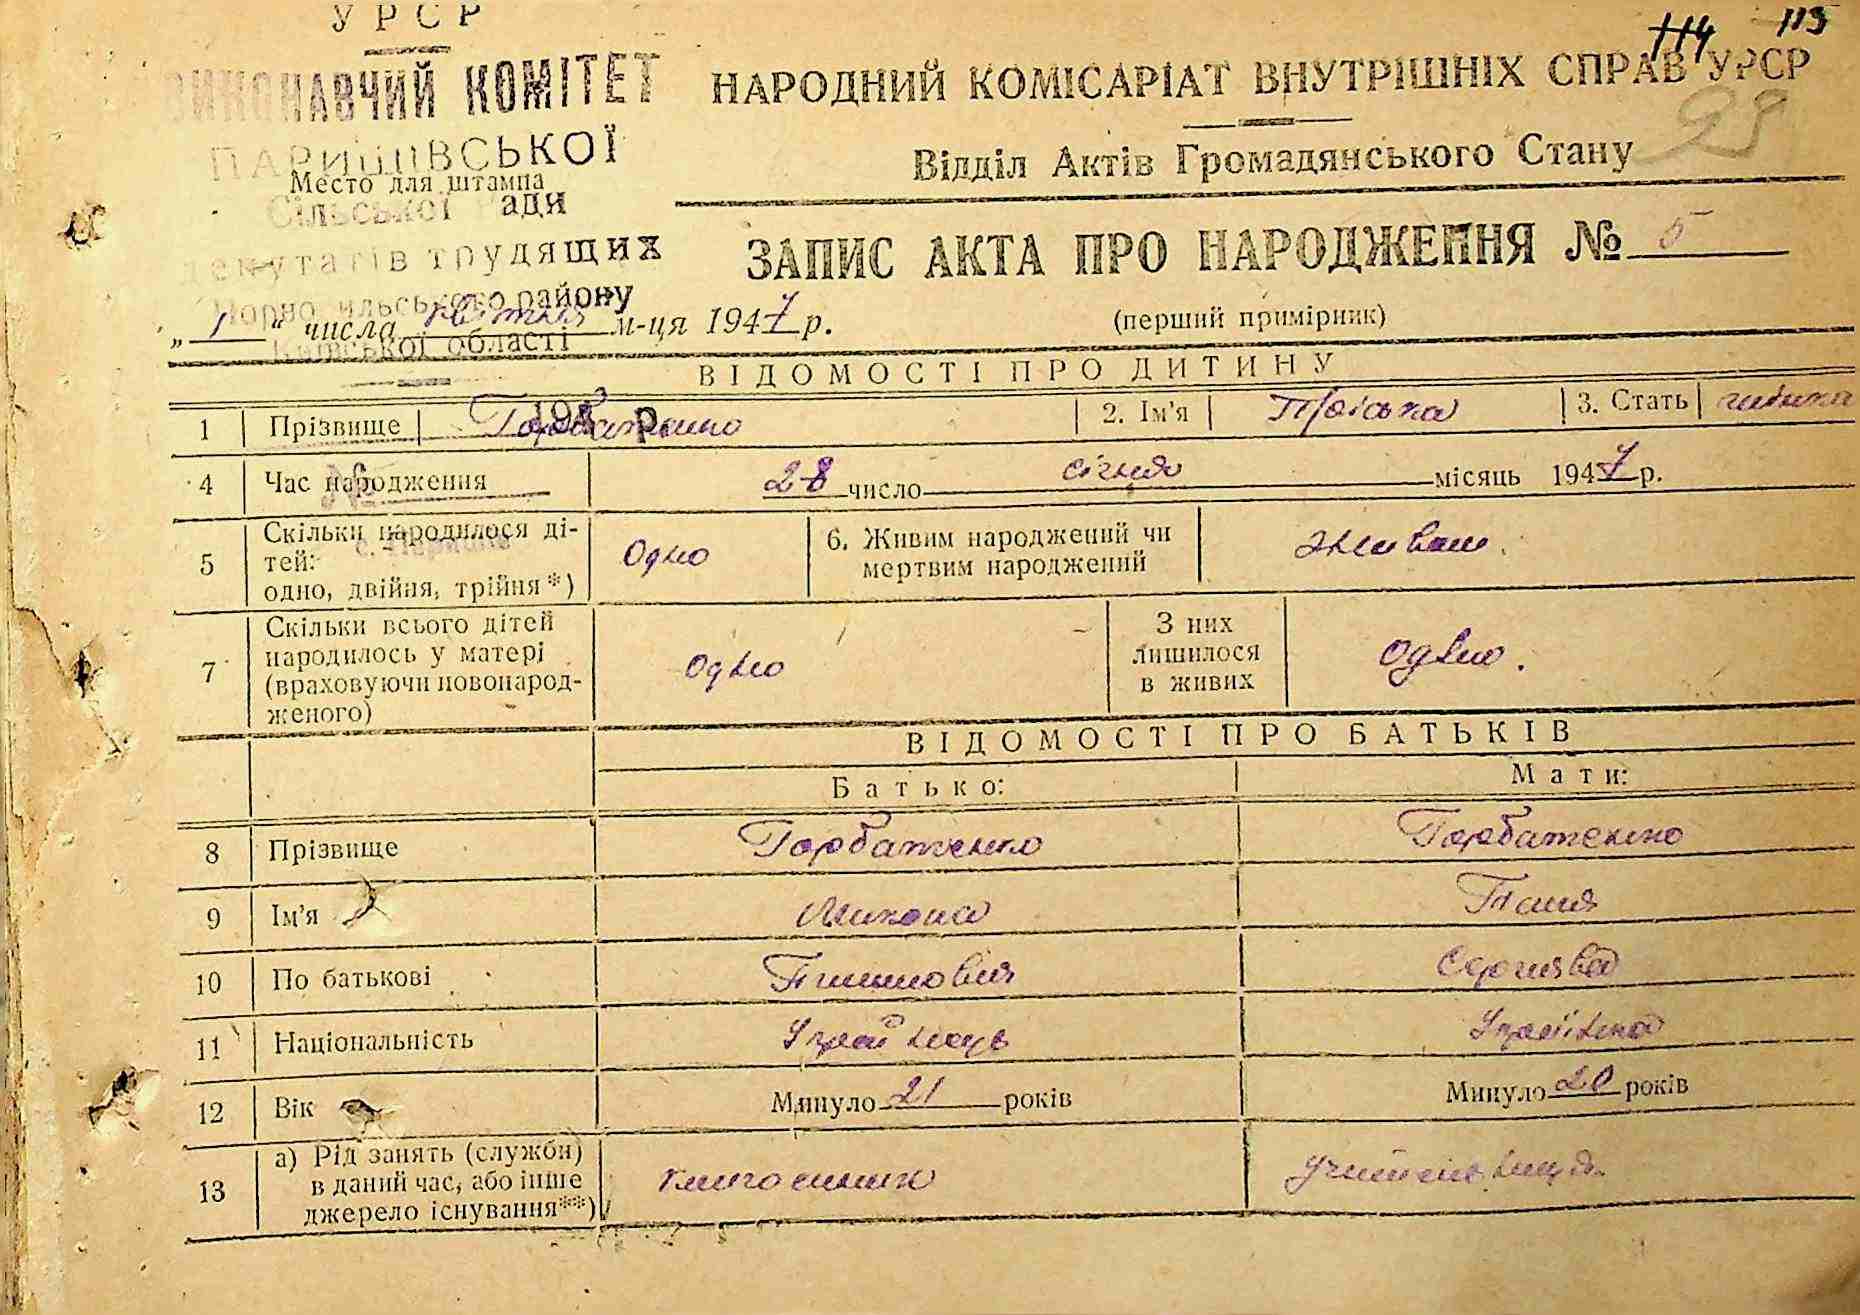 УРСР
ВИКОНАВЧИЙ КОМІТЕТ
ПАРИШІВСЬКОЇ
Место для штампа
Сільської Ради
депутатів трудящих
Чорнобильського району
Київської області
194 р.
№
114 113
НАРОДНИЙ КОМІСАРІАТ ВНУТРІШНІХ СПРАВ УРСР
99
Відділ Актів Громадянського Стану
ЗАПИС АКТА ПРО НАРОДЖЕННЯ № 5
„ 1 “ числа квітня м-ця 1947 р.
(перший примірник)
ВІДОМОСТІ ПРО ДИТИНУ
1 Прізвище Горбатенко 2. Ім'я 3. Стать жіноча
4 Час народження 28 число січня місяць 1947 р.
5 Скільки народилося ді-
тей:
одно, двійня, трійня*) Одно 6. Живим народжений чи
мертвим народжений Живим.
7 Скільки всього дітей
народилось у матері
(враховуючи новонарод-
женого) Одно З них
лишилося
в живих Одно.
ВІДОМОСТІ ПРО БАТЬКІВ
Батько: Мати:
8 Прізвище Горбатенко Горбатенко
9 Ім'я Микола Ганя
10 По батькові Сергиєва
11 Національність Українець Українка
12 Вік Минуло 21 років Минуло 20 років
13 а) Рід занять (служби)
в даний час, або інше
джерело існування**)